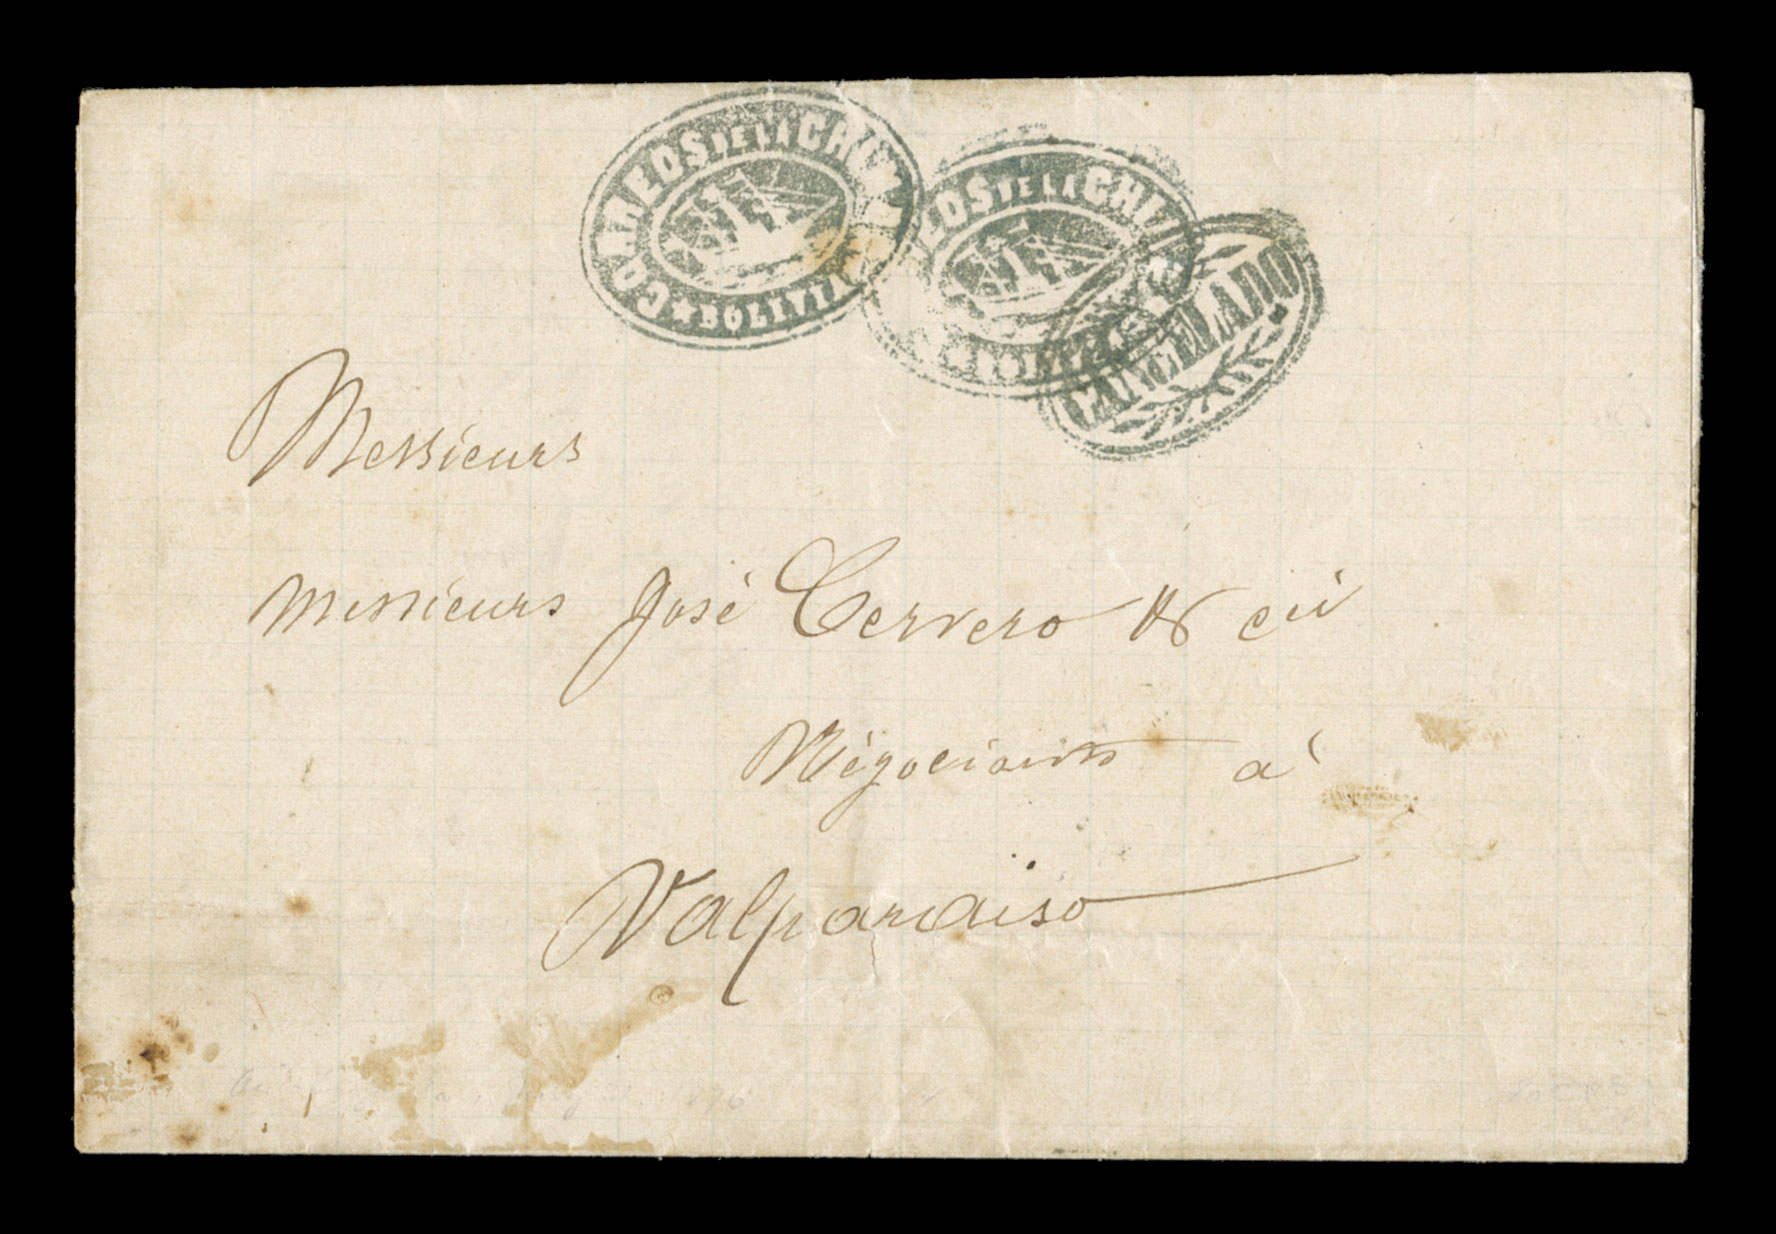 CORREOS DE LA CHIMBA
★ BOLIVIA
EOS DE LA CHI
CANCELADO
Messieurs
Messieurs José Cervero & cie
Négociants à
Valparaïso